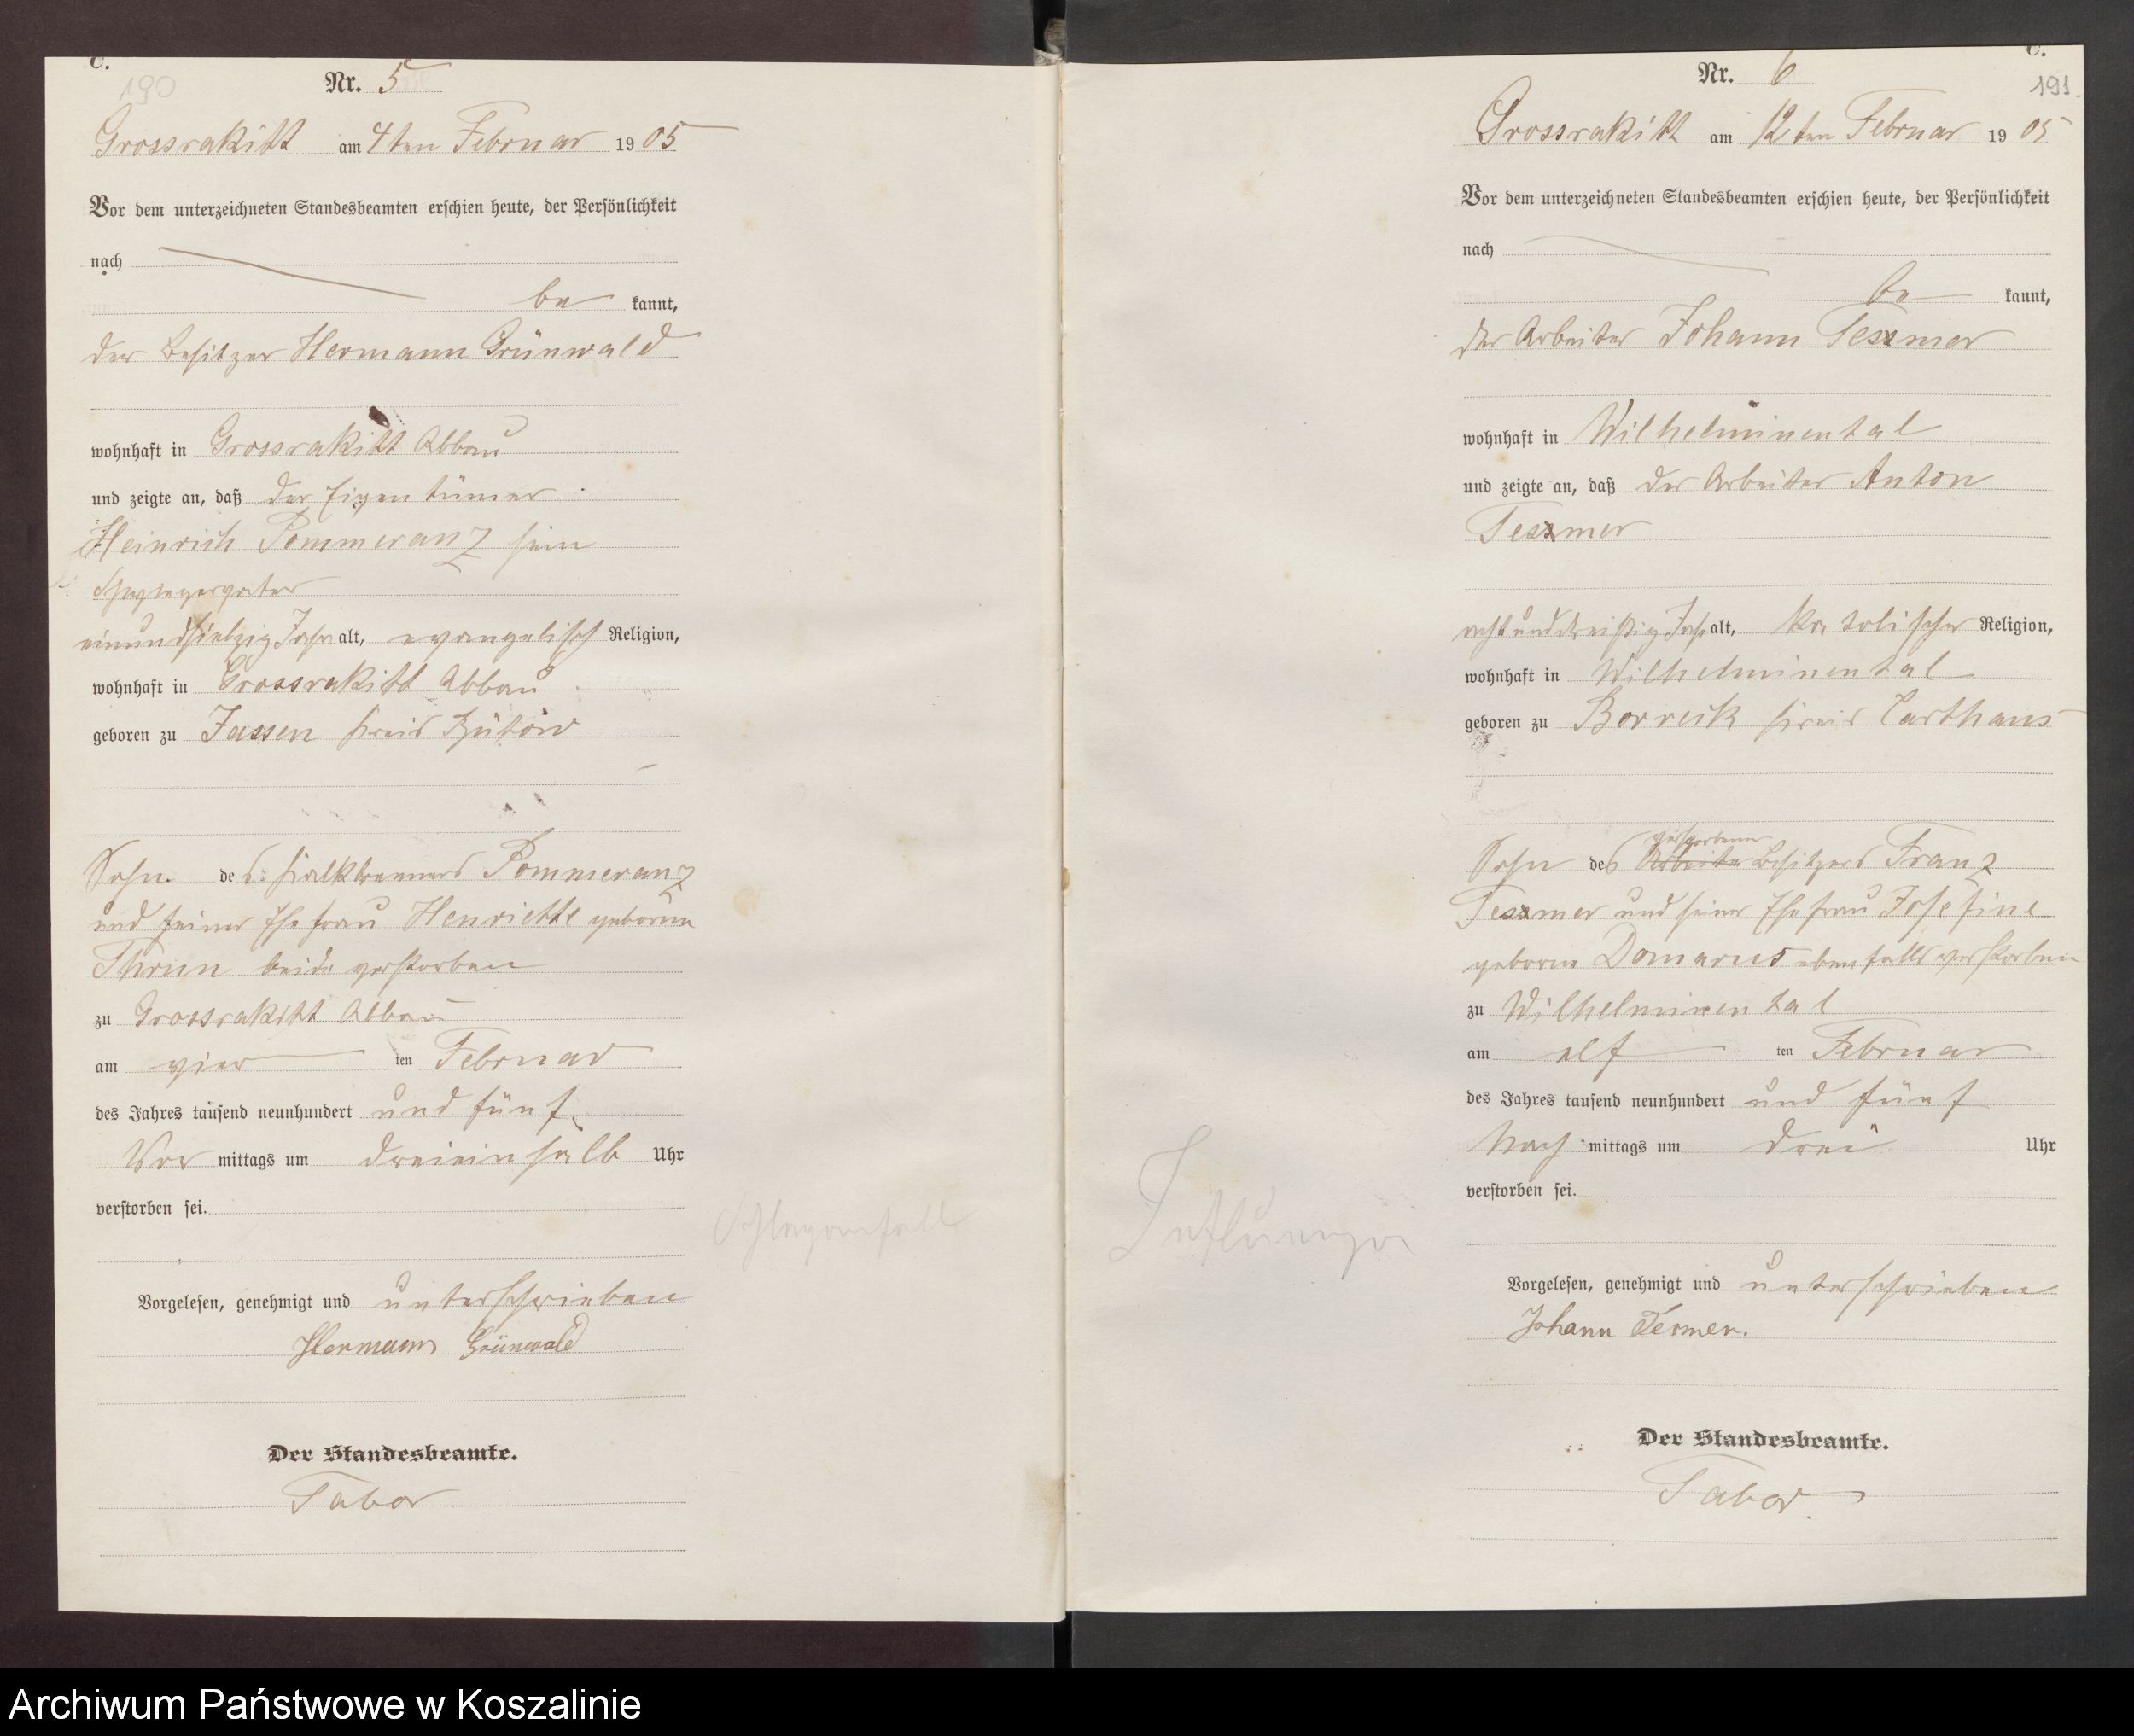 C.
190
Nr. 5
Grossrakitt am 4ten Februar 1905
Vor dem unterzeichneten Standesbeamten erschien heute, der Persönlichkeit
nach
be kannt,
der Besitzer Hermann Grünwald
wohnhaft in Grossrakitt Abbau
und zeigte an, daß der Eigentümer
Heinrich Pommeranz sein
Schwiegervater
einundsiebzig Jahre alt, evangelisch Religion,
wohnhaft in Grossrakitt Abbau
geboren zu Jassen Kreis Bütow
Sohn des Kalkbrenners Pommeranz
und seiner Ehefrau Henriette geborene
Thrun beide verstorben
zu Grossrakitt Abbau
am vier ten Februar
des Jahres tausend neunhundert und fünf
Vor mittags um dreieinhalb Uhr
verstorben sei.
Schlaganfall
Vorgelesen, genehmigt und unterschrieben
Hermann Grünwald
Der Standesbeamte.
Tabor
C.
191.
Nr. 6
Grossrakitt am 12ten Februar 1905
Vor dem unterzeichneten Standesbeamten erschien heute, der Persönlichkeit
nach
be kannt,
der Arbeiter Johann Tesmer
wohnhaft in Wilhelminental
und zeigte an, daß der Arbeiter Anton
Tesmer
achtunddreißig Jahr alt, katolischer Religion,
wohnhaft in Wilhelminental
geboren zu Borreck Kreis Carthaus
verstorbenen
Sohn des Arbeiter Besitzers Franz
Tesmer und seiner Ehefrau Josefine
geborne Domarus ebenfalls verstorben
zu Wilhelminental
am elf ten Februar
des Jahres tausend neunhundert und fünf
Nach mittags um drei Uhr
verstorben sei.
Influenza
Vorgelesen, genehmigt und unterschrieben
Johann Tesmer.
Der Standesbeamte.
Tabor
Archiwum Państwowe w Koszalinie